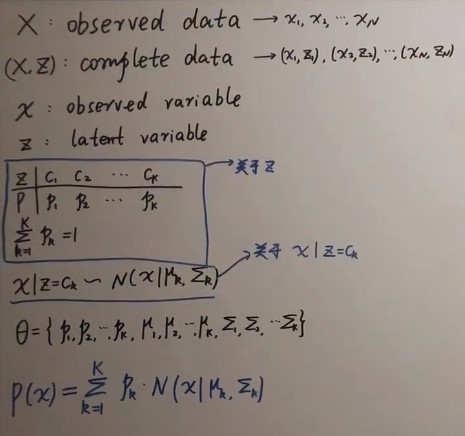 X: observed data → x₁, x₂, ⋯, x_N
(X, Z): complete data → (x₁, z₁), (x₂, z₂), ⋯, (x_N, z_N)
x: observed variable
z: latent variable
z | c₁ c₂ ⋯ c_k → 关于 z
P | p₁ p₂ ⋯ p_k
∑_{k=1}^{K} p_k = 1
x|z=c_k ~ N(x|μ_k, Σ_k) → 关于 x|z=c_k
θ = { p₁, p₂, ⋯, p_k, μ₁, μ₂, ⋯, μ_k, Σ₁, Σ₂, ⋯ Σ_k }
p(x) = ∑_{k=1}^{K} p_k · N(x|μ_k, Σ_k)